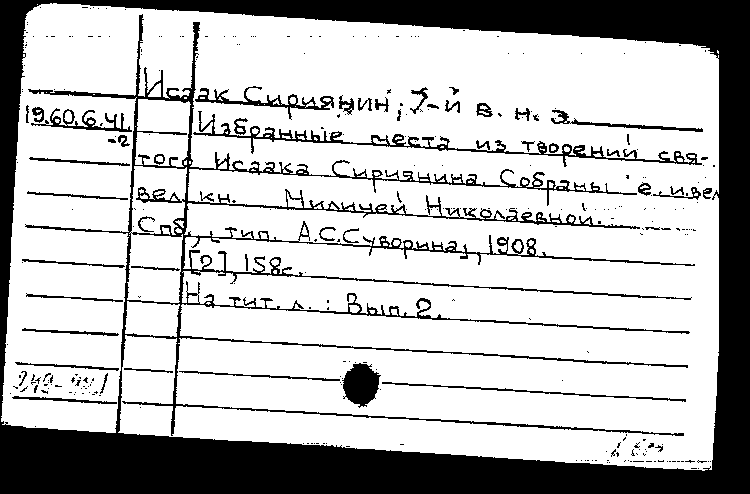 Исаак Сириянин, 7-й в. н. э.
19.60.6.41.
-2
Избранные места из творений свя-
того Исаака Сириянина. Собраны е. и. вел
вел. кн. Милицей Николаевной.
Спб., [тип. А.С.Суворина], 1908.
[2], 158с.
На тит. л. : Вып. 2.